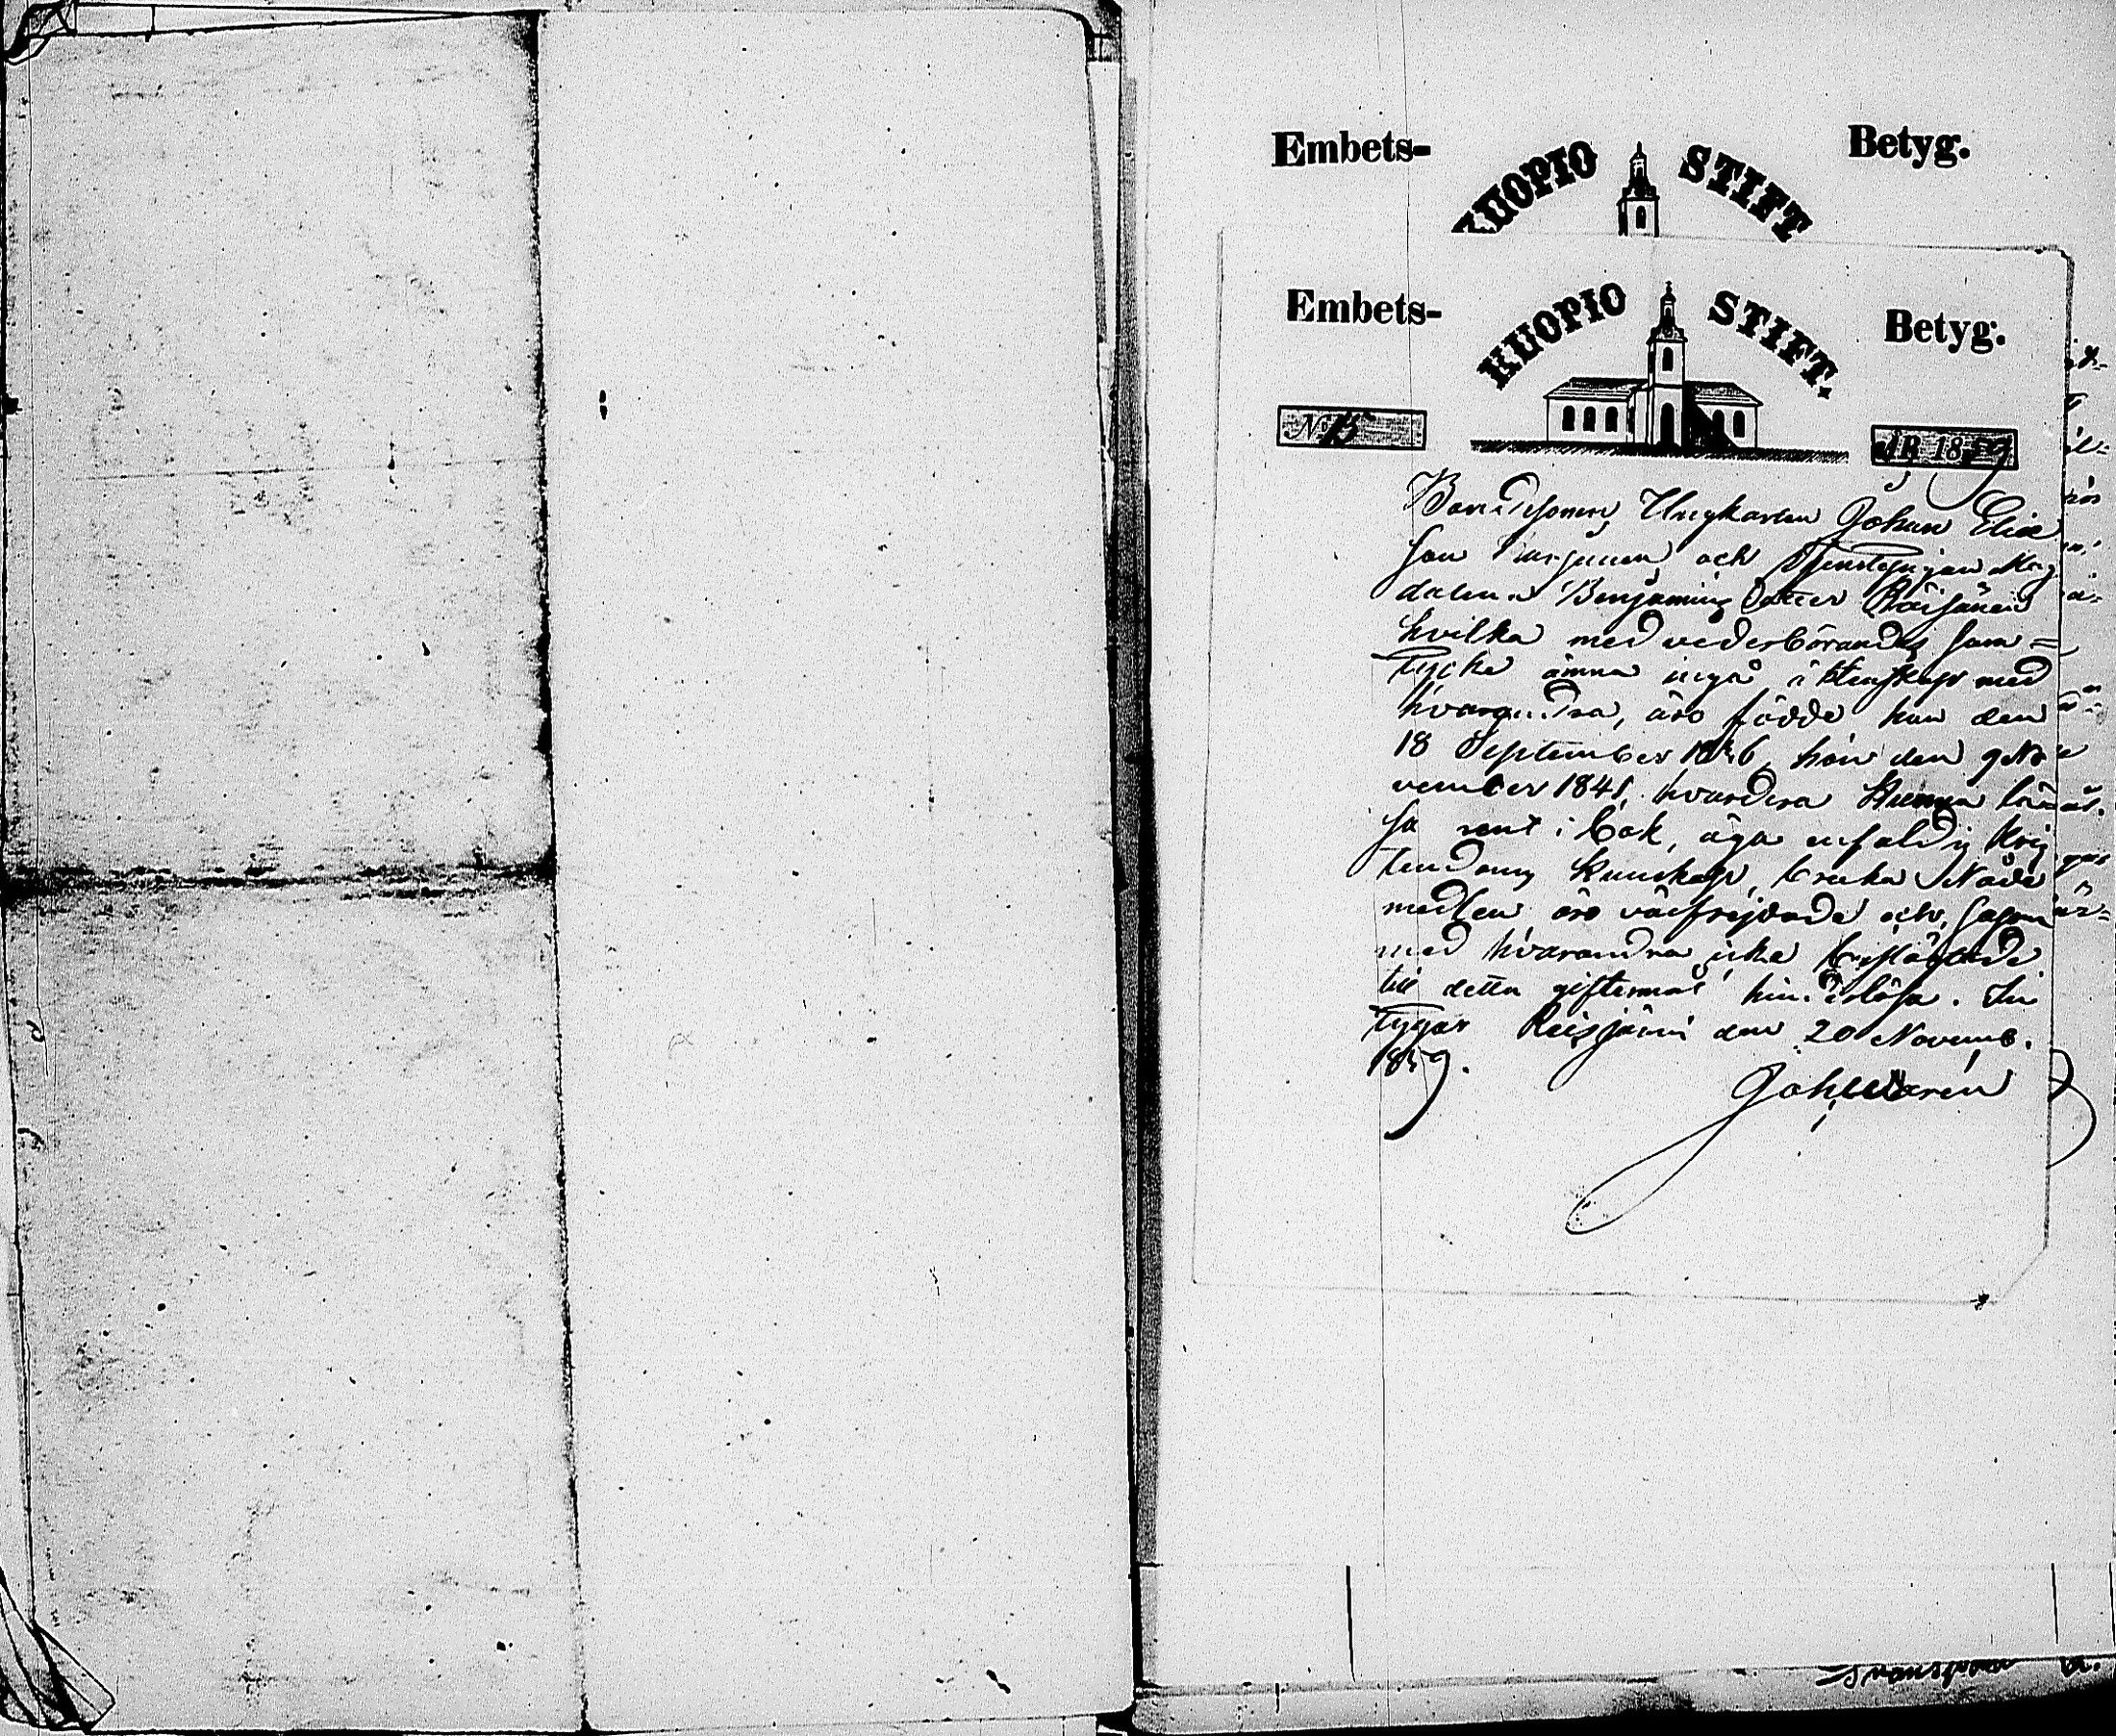 Embets- KUOPIO STIFT Betyg.
Embets- KUOPIO STIFT. Betyg.
No 15 ÅR 1859
Bondesonen, Ungkarlen Johan Elias
son och Tjenstepigan Mag
dalena Benjamins Dotter Räisänen
hvilka med vederbörandes sam=
tycke ämna ingå äktenskap med
hvarandra, äro födde han den
18 September 1836, hon den 9 No
vember 1841, hvardera kunna läsa
rent i bok, äga enfaldig Kris
tendoms kunskap, bruka Nåde
medlen äro väl frejdade och
med hvarandra icke beslägtade
till detta giftermål hinderlösa. In
tygar Reisjärvi den 20 Novemb.
1859.
Joh: